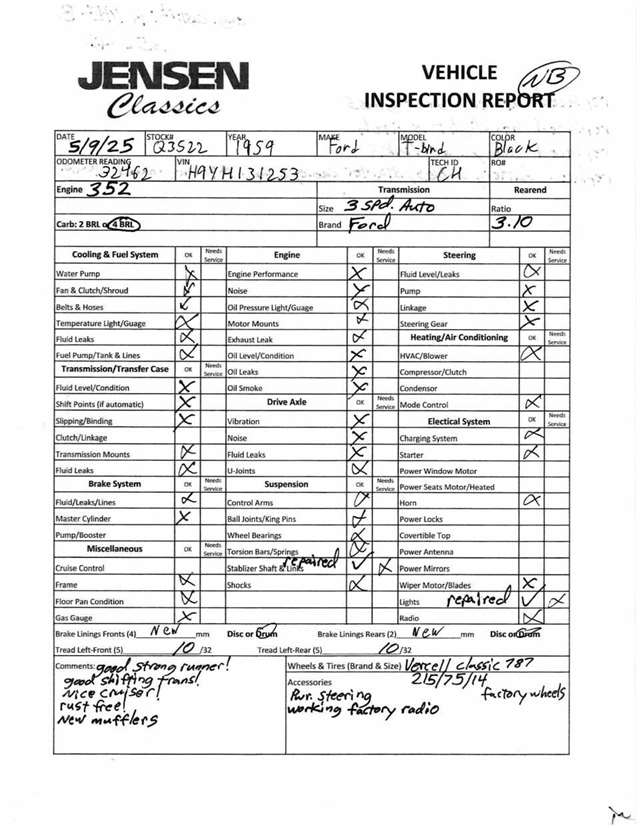 JENSEN
Classics
VEHICLE
INSPECTION REPORT
NB
DATE 5/9/25 STOCK# Q3522 YEAR 1959 MAKE Ford MODEL T-bird COLOR Black
ODOMETER READING 32462 VIN H9YH131253 TECH ID CH RO#
Engine 352 Transmission Rearend
Size 3 spd. Auto Ratio
Carb: 2 BRL or 4 BRL Brand Ford 3.10
Cooling & Fuel System OK Needs Service Engine OK Needs Service Steering OK Needs Service
Water Pump X Engine Performance X Fluid Level/Leaks X
Fan & Clutch/Shroud X Noise X Pump X
Belts & Hoses Oil Pressure Light/Guage X Linkage X
Temperature Light/Guage X Motor Mounts X Steering Gear X
Fluid Leaks X Exhaust Leak X Heating/Air Conditioning OK Needs Service
Fuel Pump/Tank & Lines X Oil Level/Condition X HVAC/Blower X
Transmission/Transfer Case OK Needs Service Oil Leaks X Compressor/Clutch
Fluid Level/Condition X Oil Smoke X Condensor
Shift Points (if automatic) X Drive Axle OK Needs Service Mode Control X
Slipping/Binding X Vibration X Electical System OK Needs Service
Clutch/Linkage Noise X Charging System X
Transmission Mounts X Fluid Leaks X Starter X
Fluid Leaks X U-Joints X Power Window Motor
Brake System OK Needs Service Suspension OK Needs Service Power Seats Motor/Heated
Fluid/Leaks/Lines X Control Arms X Horn X
Master Cylinder X Ball Joints/King Pins X Power Locks
Pump/Booster Wheel Bearings X Covertible Top
Miscellaneous OK Needs Service Torsion Bars/Springs X Power Antenna
Cruise Control Stablizer Shaft & Links repaired ✓ X Power Mirrors
Frame X Shocks X Wiper Motor/Blades X
Floor Pan Condition X Lights repaired ✓ X
Gas Gauge X Radio X
Brake Linings Fronts (4) New mm Disc or Drum Brake Linings Rears (2) New mm Disc or Drum
Tread Left-Front (5) 10/32 Tread Left-Rear (5) 10/32
Comments: good strong runner! Wheels & Tires (Brand & Size) Vercell classic 787
good shifting trans! 215/75/14
nice cruiser! Accessories factory wheels
rust free! Pwr. Steering
New mufflers working factory radio